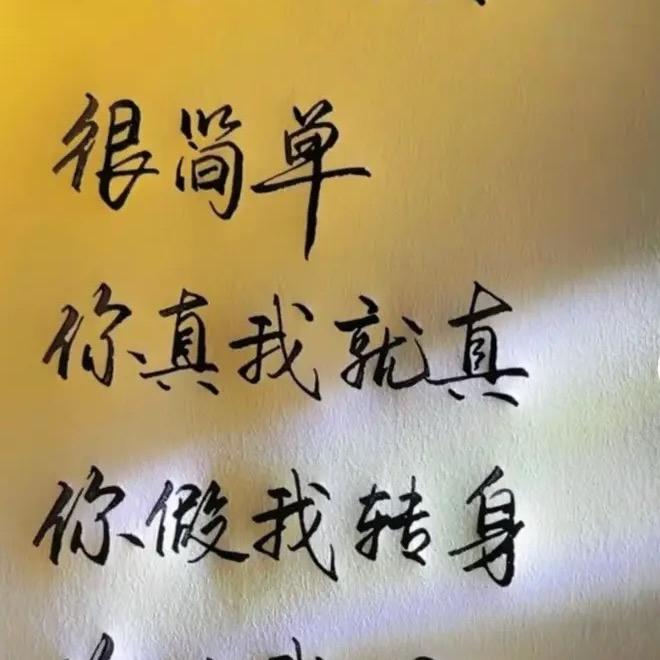 很简单
你真我就真
你假我转身